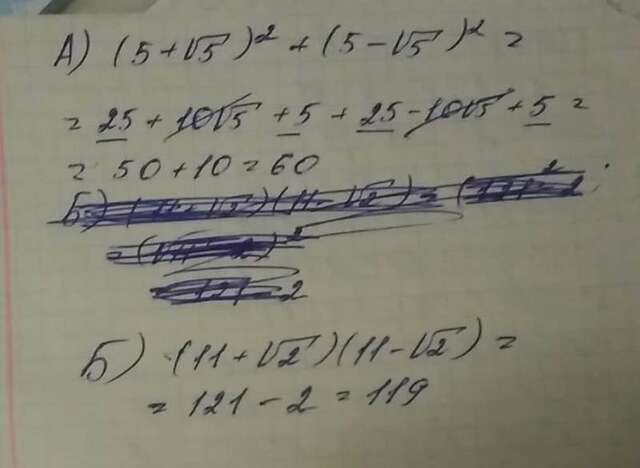 А) (5+√5)² + (5-√5)² =
= 25 + 10√5 + 5 + 25 - 10√5 + 5 =
= 50 + 10 = 60
Б) (11+√2)(11-√2) =
= 121 - 2 = 119